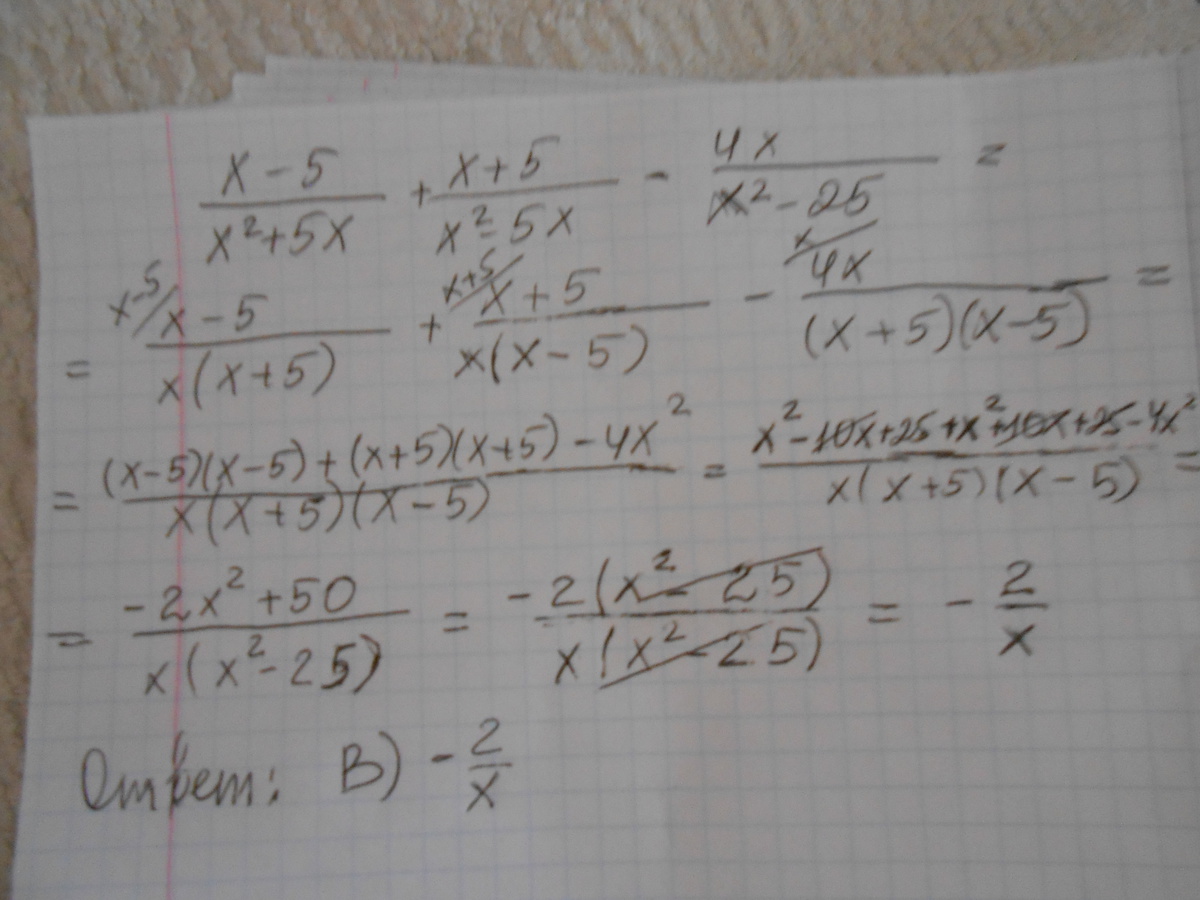 (x-5)/(x²+5x) + (x+5)/(x²-5x) - 4x/(x²-25) =
= x-5/ (x-5)/(x(x+5)) + x+5/ (x+5)/(x(x-5)) - x/ 4x/((x+5)(x-5)) =
= ((x-5)(x-5)+(x+5)(x+5)-4x²)/(x(x+5)(x-5)) = (x²-10x+25+x²+10x+25-4x²)/(x(x+5)(x-5)) =
= (-2x²+50)/(x(x²-25)) = (-2(x²-25))/(x(x²-25)) = -2/x
Ответ: В) -2/x